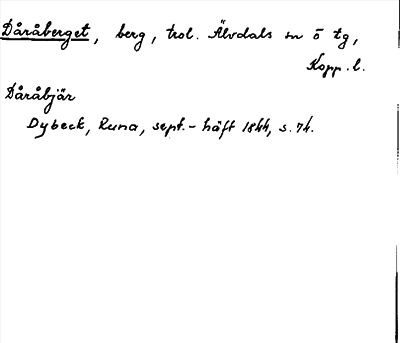 Dåråberget, berg, trol. Älvdals sn ö tg,
Kopp. l.
Dåråbjär
Dybeck, Runa, sept.-häft 1844, s. 74.